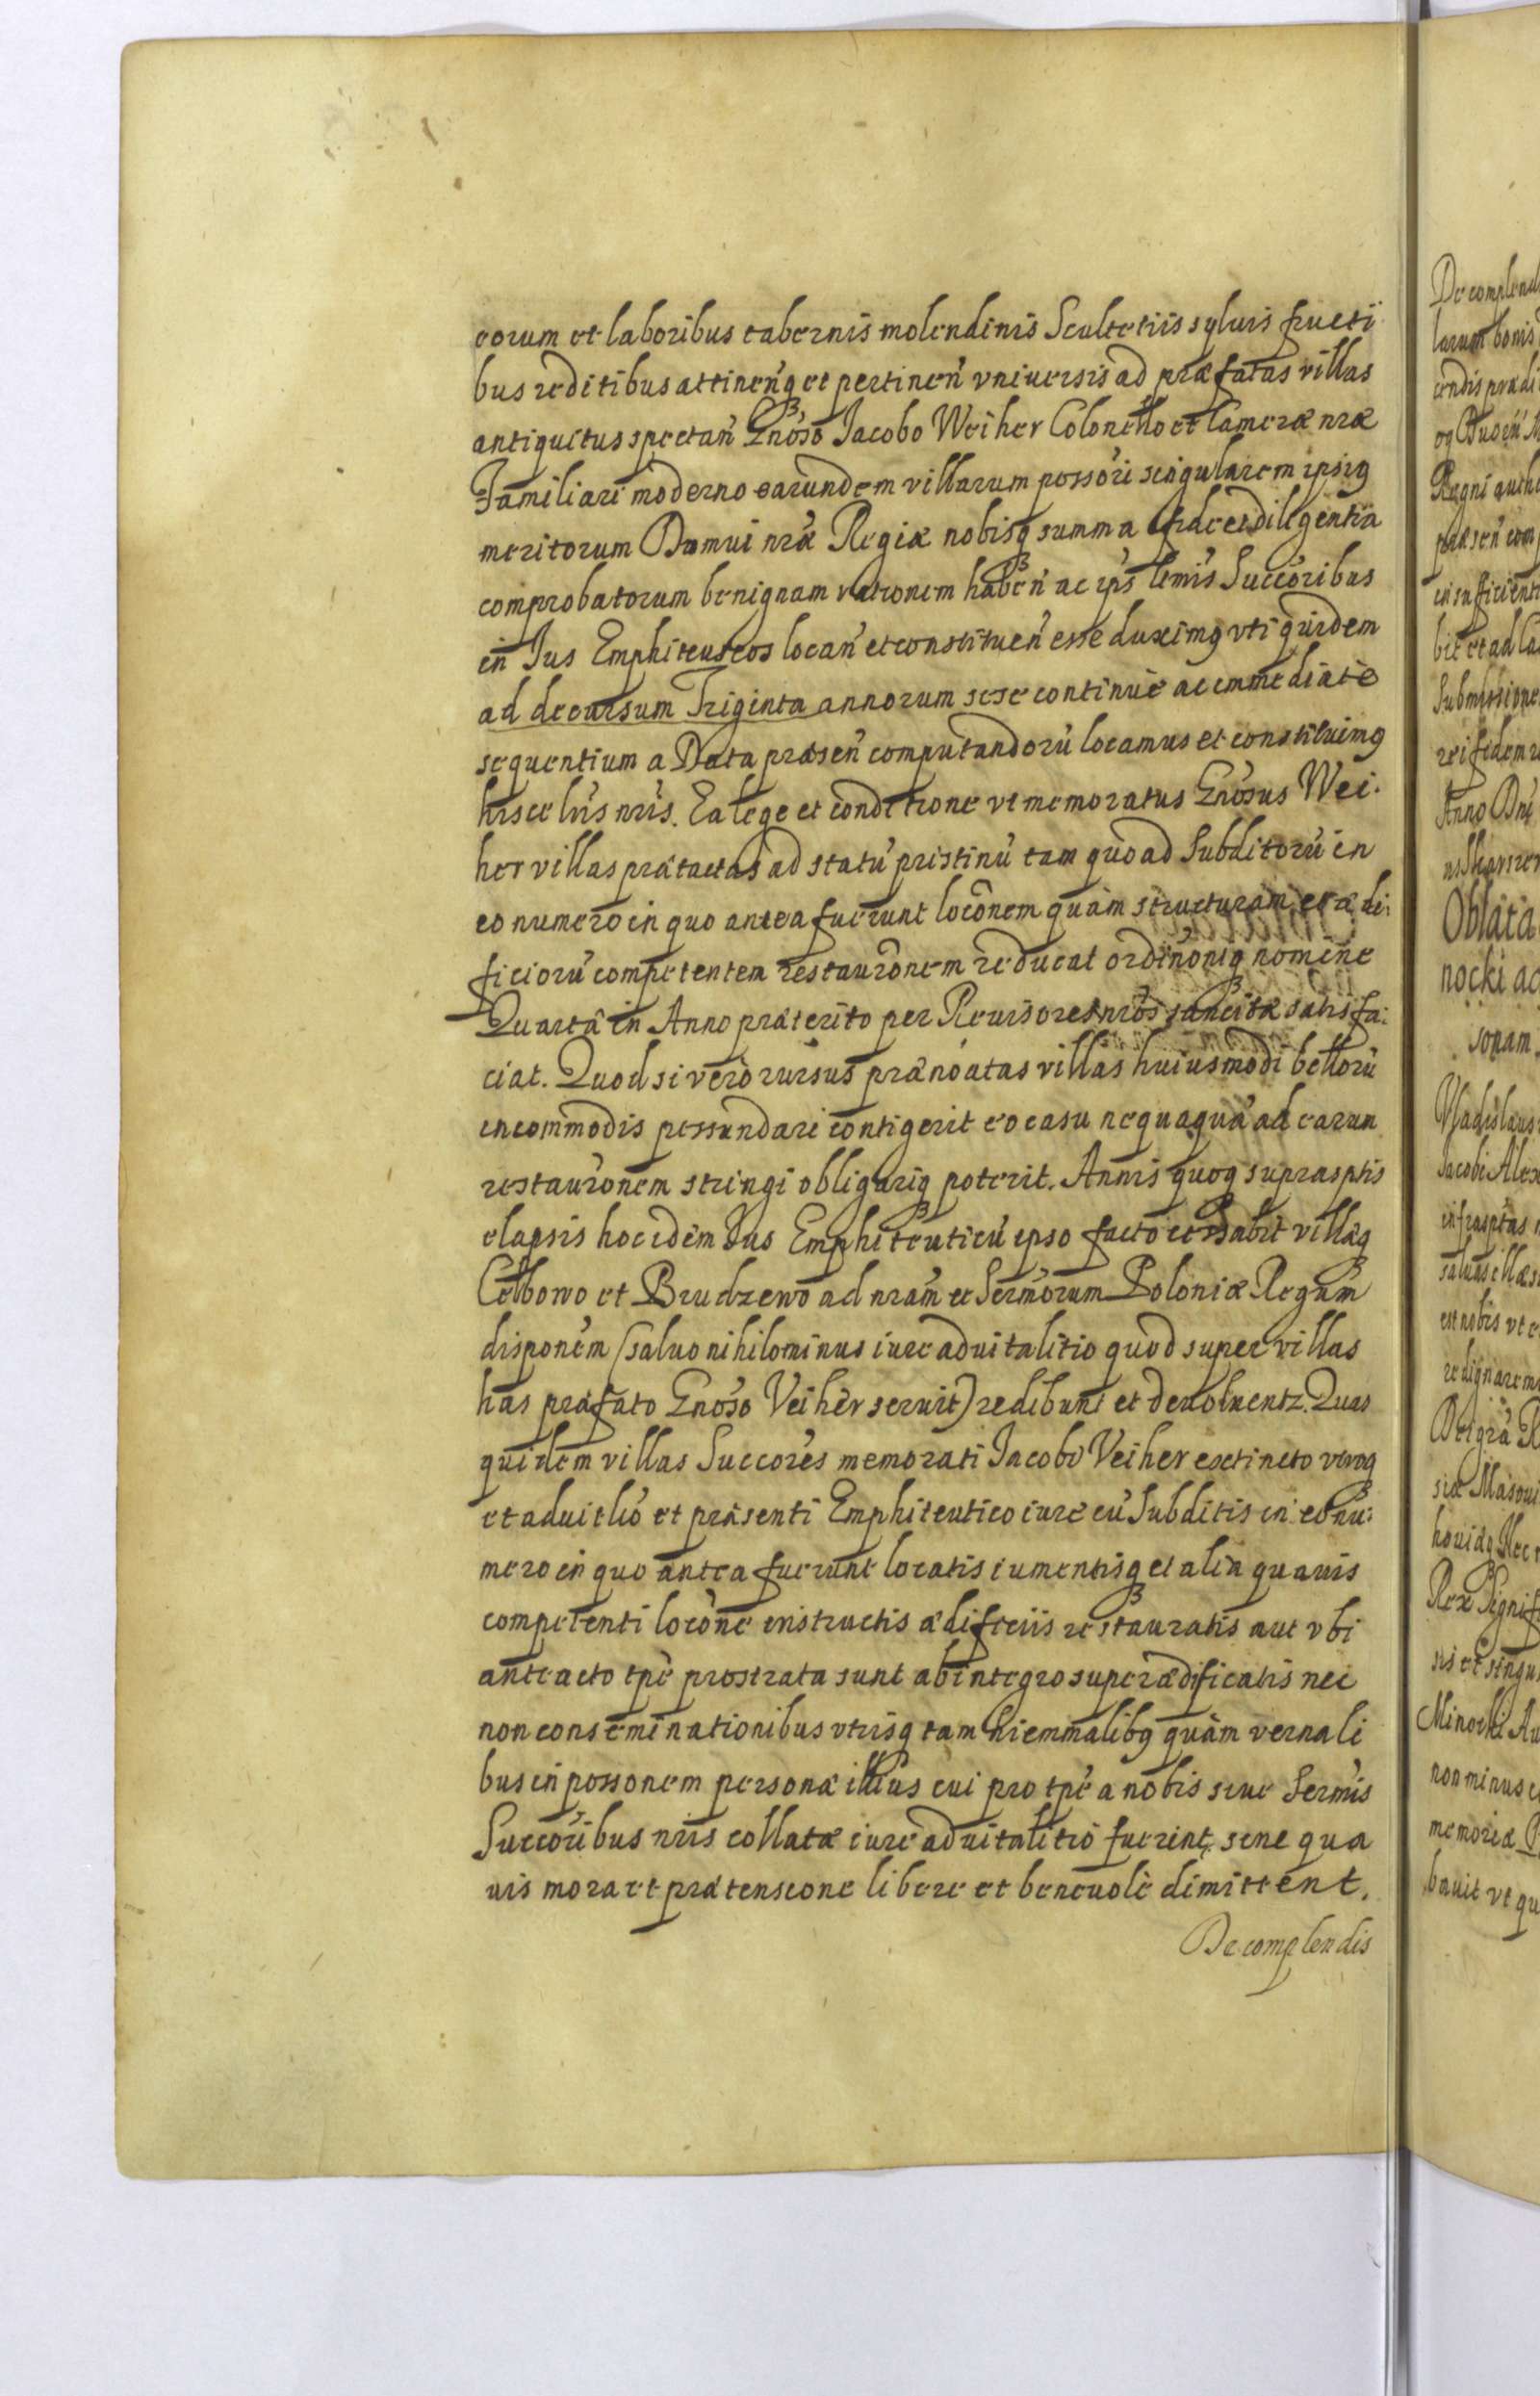 eorum et laboribus tabernis molendinis Scultetiis syluis fructi
bus reditibus attinen͂q et pertinen͂ vniuersis ad præfatas villas
antiquitus spectan͂ Gnoso Jacobo Weiher Colonello et Cameræ nræ
Familiari moderno earundem villarum possori singularem ipsiq
meritorum Domui nræ Regiæ nobisq summa fide et diligentia
comprobatorum benignam rationem haben͂ ac ips lemis Succoribus
in Jus Emphiteuseos locan͂ et constituen͂ esse duximq vti quidem
ad decursum Triginta annorum sese continuè ac immediatè
sequentium a Data præsen͂ computandorū locamus et constituimq
hisce lris nris. Ea lege et conditione vt memoratus Gnosus Wei:
her villas prætactas ad statū pristinū tam quoad Subditorū in
eo numero in quo antea fuerunt loconem quàm structuram et ædi:
ficiorū competentem restauronem reducat ordinoniq nomine
Quartæ in Anno præterito per Reuisores nros sancitæ satisfa:
ciat. Quod si verò rursus prænoatas villas huiusmodi bellorū
incommodis pessundari contigerit eo casu nequaquā ad earun
restauronem stringi obligariq poterit. Annis quoq suprasptis
elapsis hoc idem Jus Emphiteuticū ipso facto cessabit villæq
Celbowo et Brudzewo ad nram et Sermorum Poloniæ Regum
disponem (saluo nihilominus iure aduitalitio quod super villas
has præfato Gnoso Veiher seruit) redibunt et deuoluentz. Quas
quidem villas Succores memorati Jacobi Veiher extincto vtroq
et aduitlio et præsenti Emphiteutico iure cū Subditis in eo nu:
mero in quo antea fuerunt locatis iumentisq et alia quauis
competenti locone instructis ædificiis restauratis aut vbi
anteacto tpe prostrata sunt ab integro superædificatis nec
non conseminationibus vtrisq tam hiemmalibq quàm vernali
bus in possonem personæ illius cui pro tpe a nobis siue Sermis
Succoribus nris collatæ iure aduitalitio fuerint, sine qua
uis mora et prætensione libere et beneuolè dimittent.
De complendis